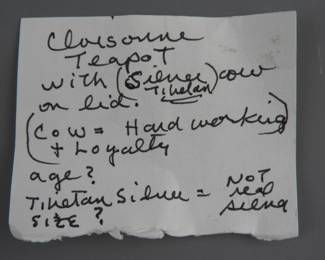 Cloisonne
Teapot
with (Silver) cow
Tibetan
on lid.
(Cow = Hard working
+ Loyalty)
age?
Tibetan Silver = Not real silver
size?